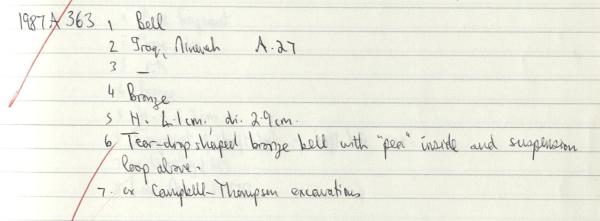 1987A363 1 Bell
2 Iraq, Nineveh A.27
3 —
4 Bronze
5 H. 4.1cm, di. 2.9cm.
6 Tear-drop shaped bronze bell with "pea" inside and suspension
loop above.
7. ex Campbell-Thompson excavations